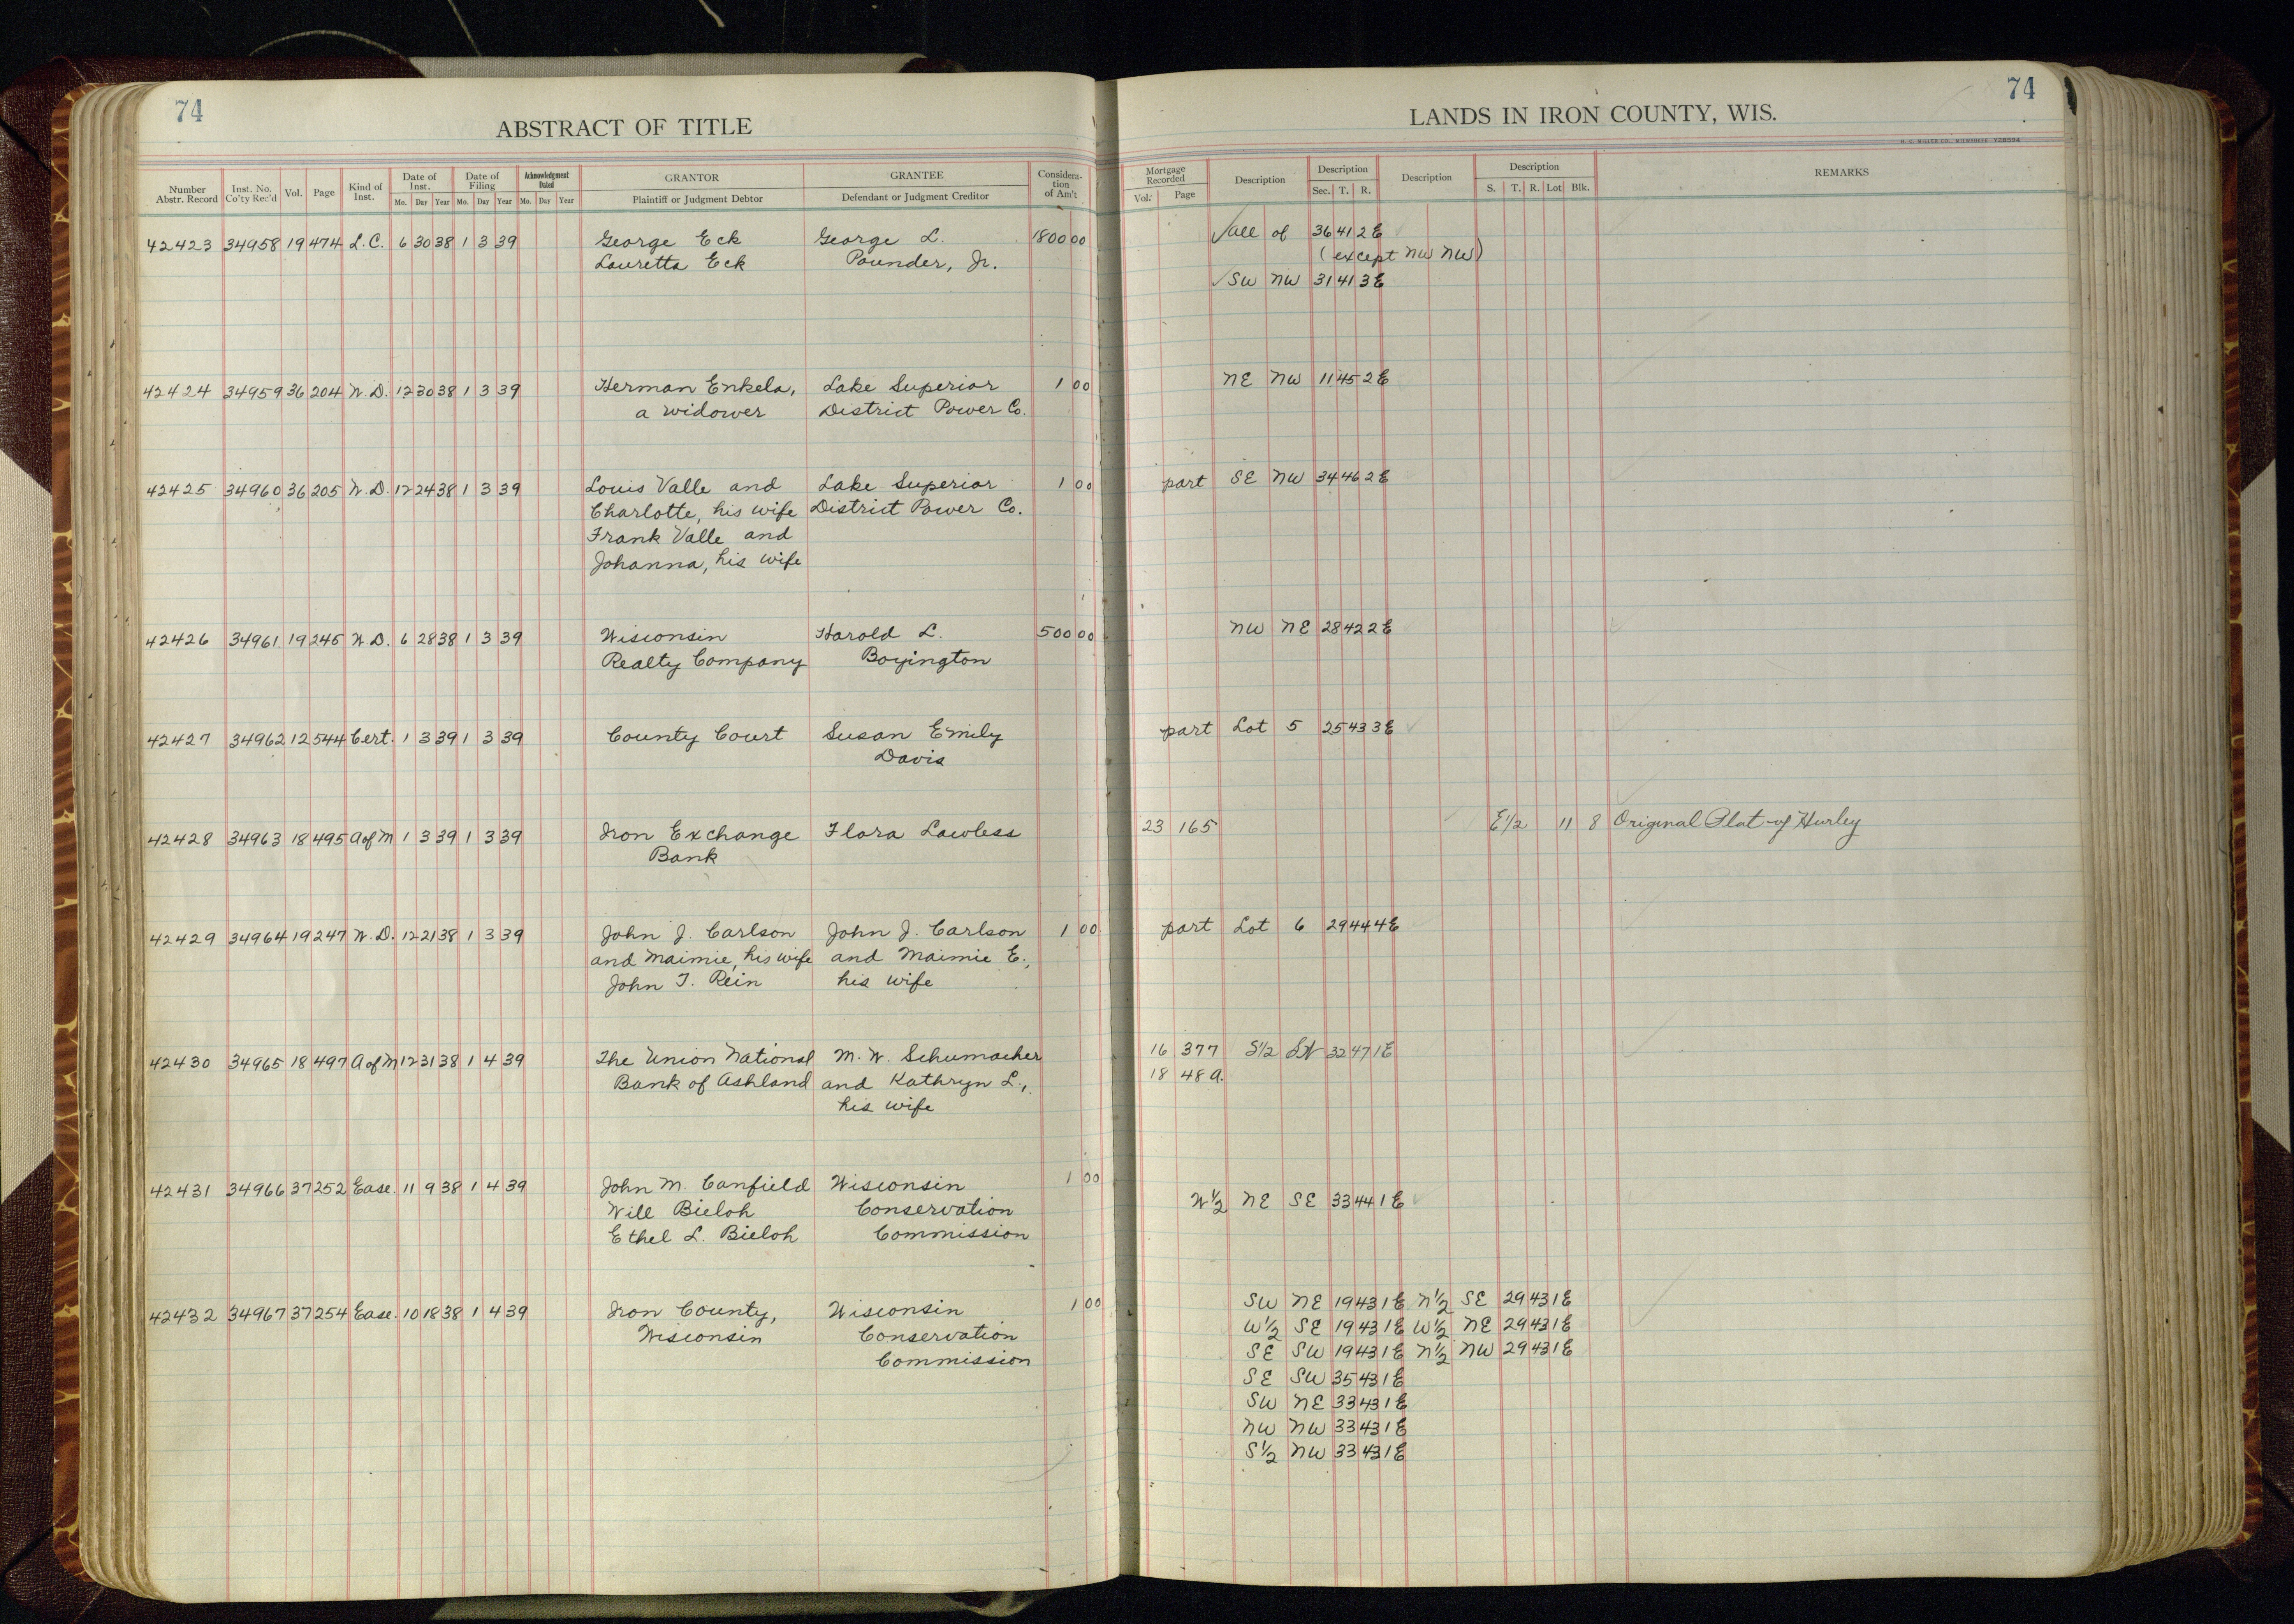 74
74
ABSTRACT OF TITLE
LANDS IN IRON COUNTY, WIS.
H. C. MILLER CO., MILWAUKEE
Number Abstr. Record | Inst. No. Co'ty Rec'd | Vol. | Page | Kind of Inst. | Date of Inst. Mo. Day Year | Date of Filing Mo. Day Year | Acknowledgment Dated Mo. Day Year | GRANTOR Plaintiff or Judgment Debtor | GRANTEE Defendant or Judgment Creditor | Consideration of Am't | Mortgage Recorded Vol. Page | Description | Description Sec. T. R. | Description | Description S. T. R. Lot Blk. | REMARKS
42423 34958 19 474 L.C. 6 30 38 1 3 39 George Eck George L. 1800 00 √ all of 36 41 2E
Lauretta Eck Pounder, Jr. (except NW NW)
√ SW NW 31 41 3E
42424 34959 36 204 W.D. 12 30 38 1 3 39 Herman Enkela, Lake Superior 1 00 NE NW 11 45 2E
a widower District Power Co.
42425 34960 36 205 W.D. 12 24 38 1 3 39 Louis Valle and Lake Superior 1 00 part SE NW 34 46 2E
Charlotte, his wife District Power Co.
Frank Valle and
Johanna, his wife
42426 34961 19 245 W.D. 6 28 38 1 3 39 Wisconsin Harold L. 500 00 NW NE 28 42 2E
Realty Company Boyington
42427 34962 12 544 Cert. 1 3 39 1 3 39 County Court Susan Emily part Lot 5 25 43 3E
Davis
42428 34963 18 495 A of M 1 3 39 1 3 39 Iron Exchange Flora Lawless 23 165 E½ 11 8 Original Plat of Hurley
Bank
42429 34964 19 247 W.D. 12 21 38 1 3 39 John J. Carlson John J. Carlson 1 00 part Lot 6 29 44 4E
and Maimie, his wife and Maimie E.,
John T. Rein his wife
42430 34965 18 497 A of M 12 31 38 1 4 39 The Union National M. W. Schumacher 16 377 S½ 32 47 1E
Bank of Ashland and Kathryn L., 18 48 a.
his wife
42431 34966 37 252 Ease. 11 9 38 1 4 39 John M. Canfield Wisconsin 1 00 W½ NE SE 33 44 1E
Will Bieloh Conservation
Ethel L. Bieloh Commission
42432 34967 37 254 Ease. 10 18 38 1 4 39 Iron County, Wisconsin 1 00 SW NE 19 43 1E N½ SE 29 43 1E
Wisconsin Conservation W½ SE 19 43 1E W½ NE 29 43 1E
Commission SE SW 19 43 1E N½ NW 29 43 1E
SE SW 35 43 1E
SW NE 33 43 1E
NW NW 33 43 1E
S½ NW 33 43 1E